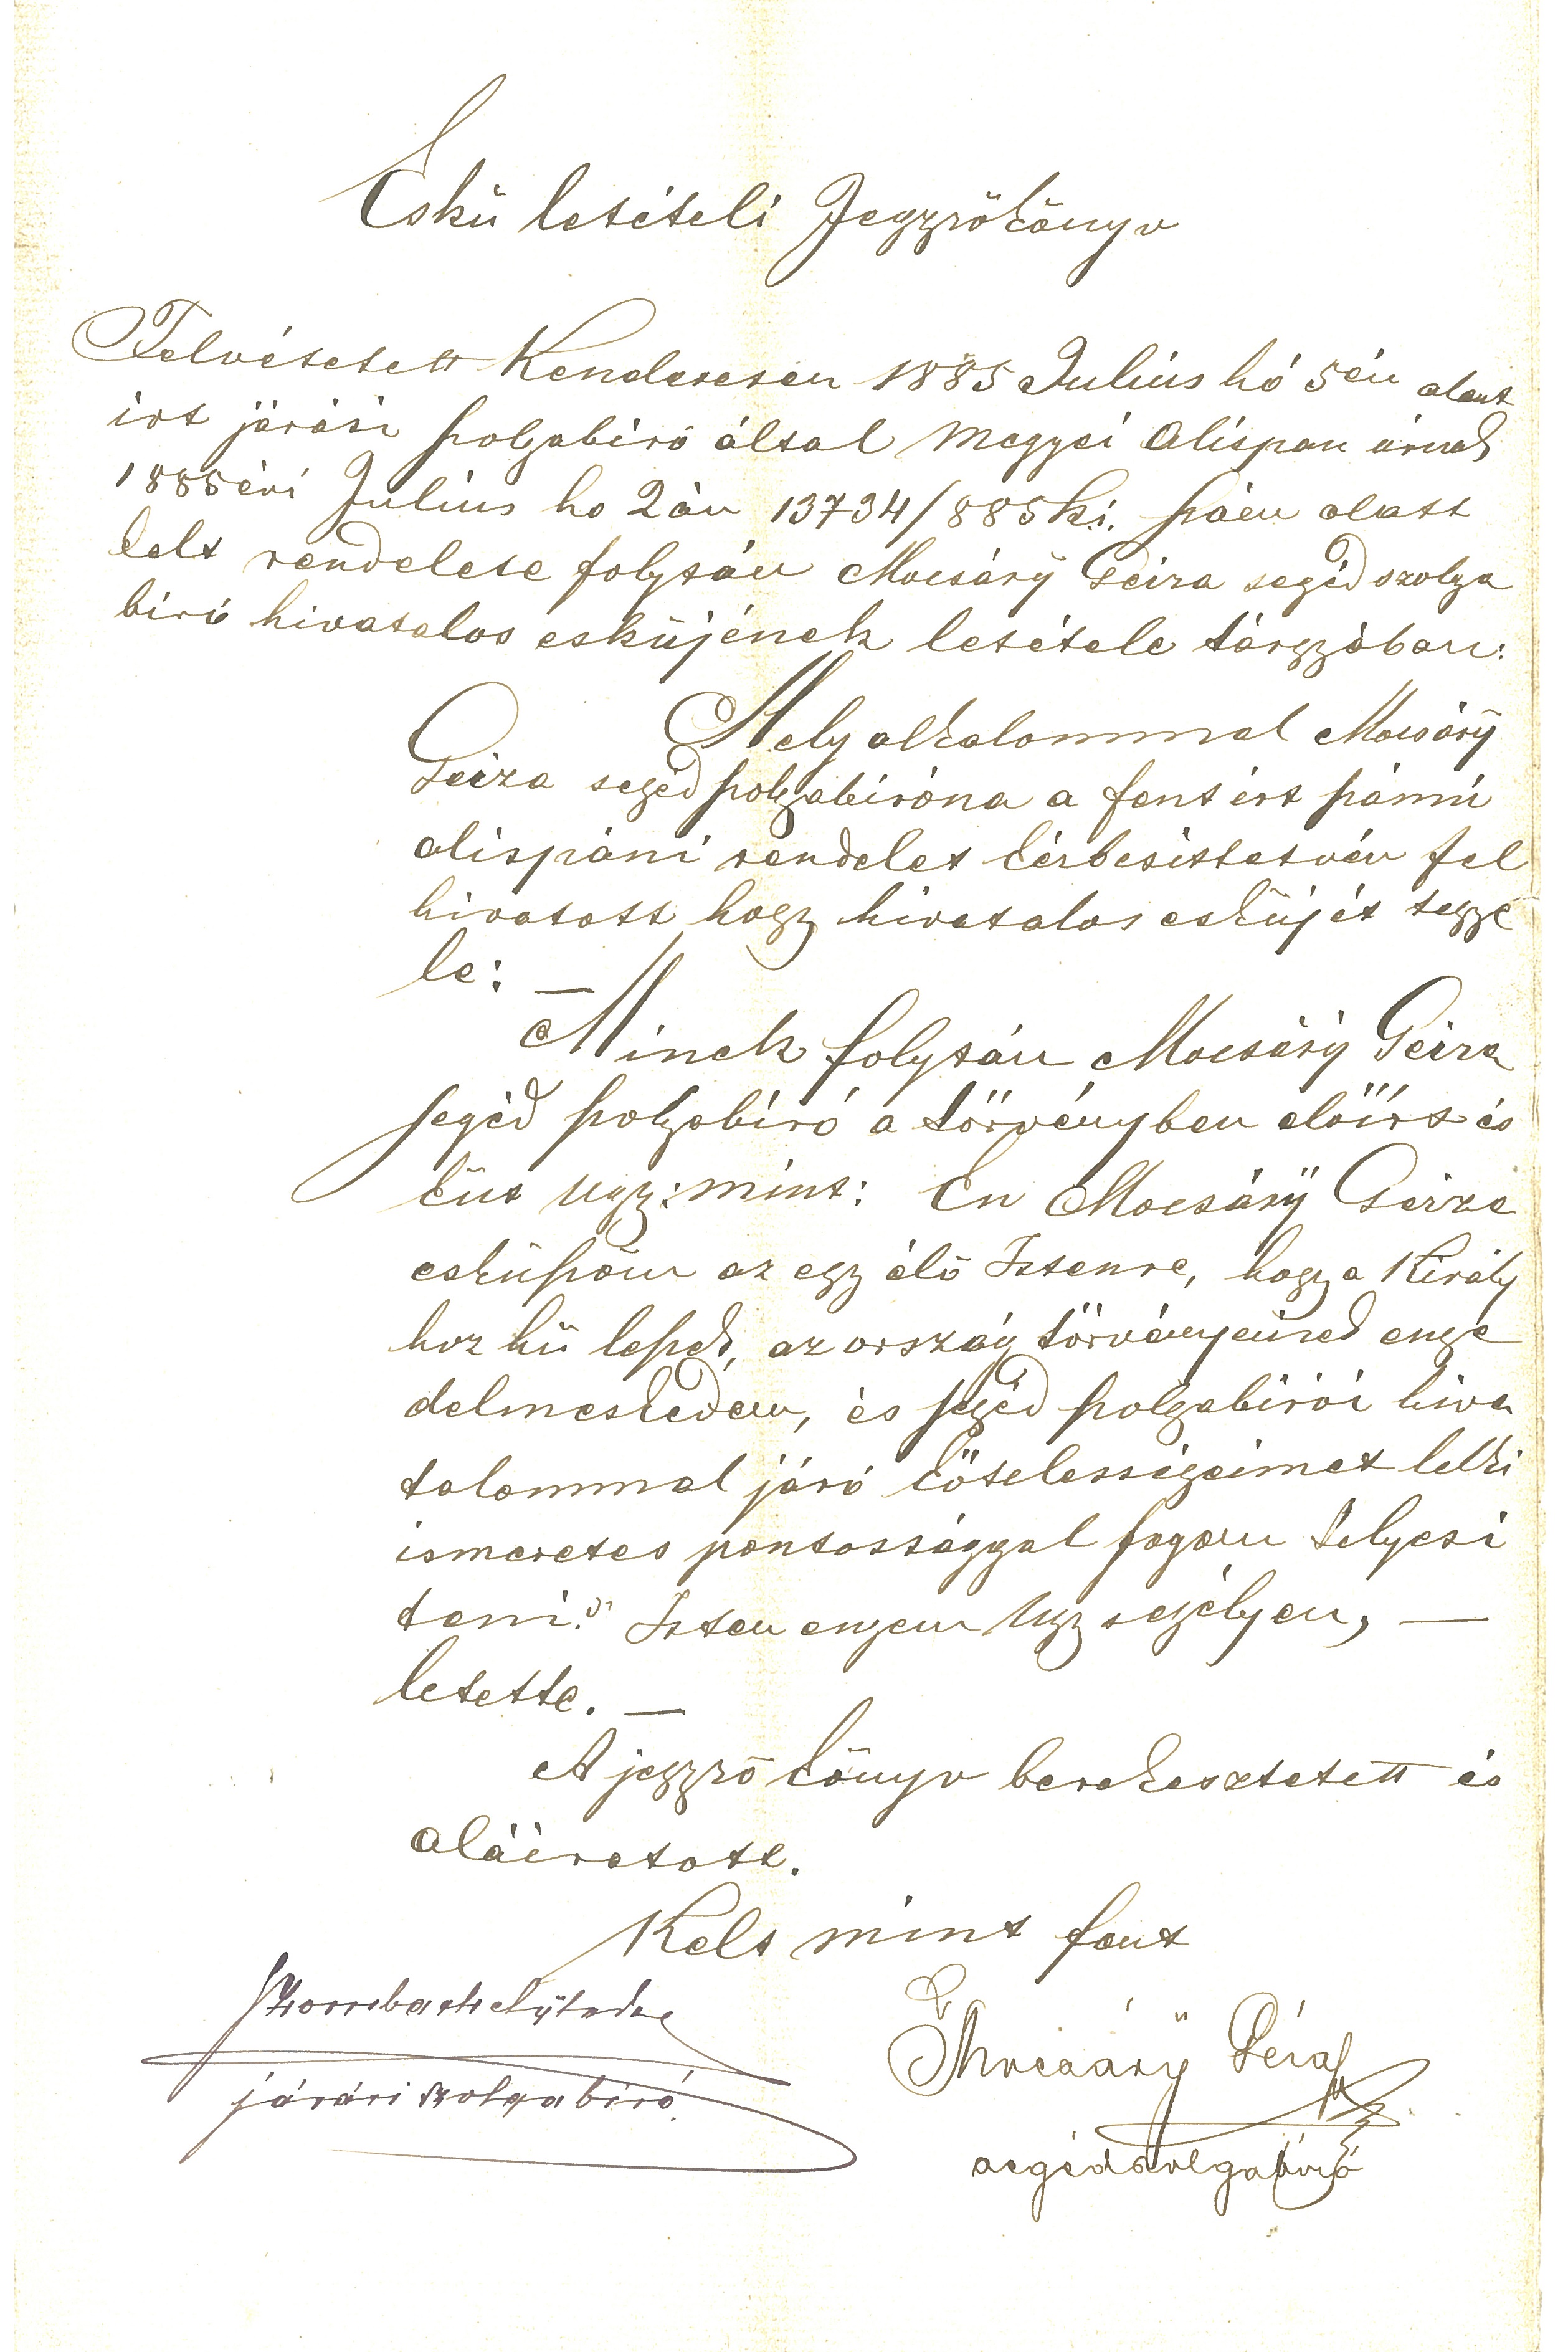 Eskü letételi Jegyzőkönyv
Felvétetett Kenderesen 1885 Július hó 5én alant
irt járási szolgabiró által Megyei Alispan úrnak
1885 évi Július ho 2án 13734/885 ki. szám alatt
kelt rendelese folytán Mocsáry Géiza segéd szolga
biró hivatalos esküjének letétele tárgyában:
Mely alkalommal Mocsáry
Géiza segéd szolgabiróna a fent irt számú
alispáni rendelet kézbesittetvén fel
hivatott hogy hivatalos esküjét tegye
le: —
Minek folytán Mocsáry Géiza
segéd szolgabiró a törvényben előirt es
küt ugy: mint: En Mocsáry Géiza
esküszöm az egy élő Istenre, hogy a Király
hoz hü leszek, az ország törvényeinek enge
delmeskedem, és segéd szolgabirói hiva
talommal járó kötelességeimet lelki
ismeretes pontossággal fogom telyesi
teni." Isten engem ugy segélyen, —
letette. —
A jegyző könyv berekesztetett és
aláiratott.
Kelt mint fent
járási szolgabiró
Mocsáry Géza
segédszolgabiró